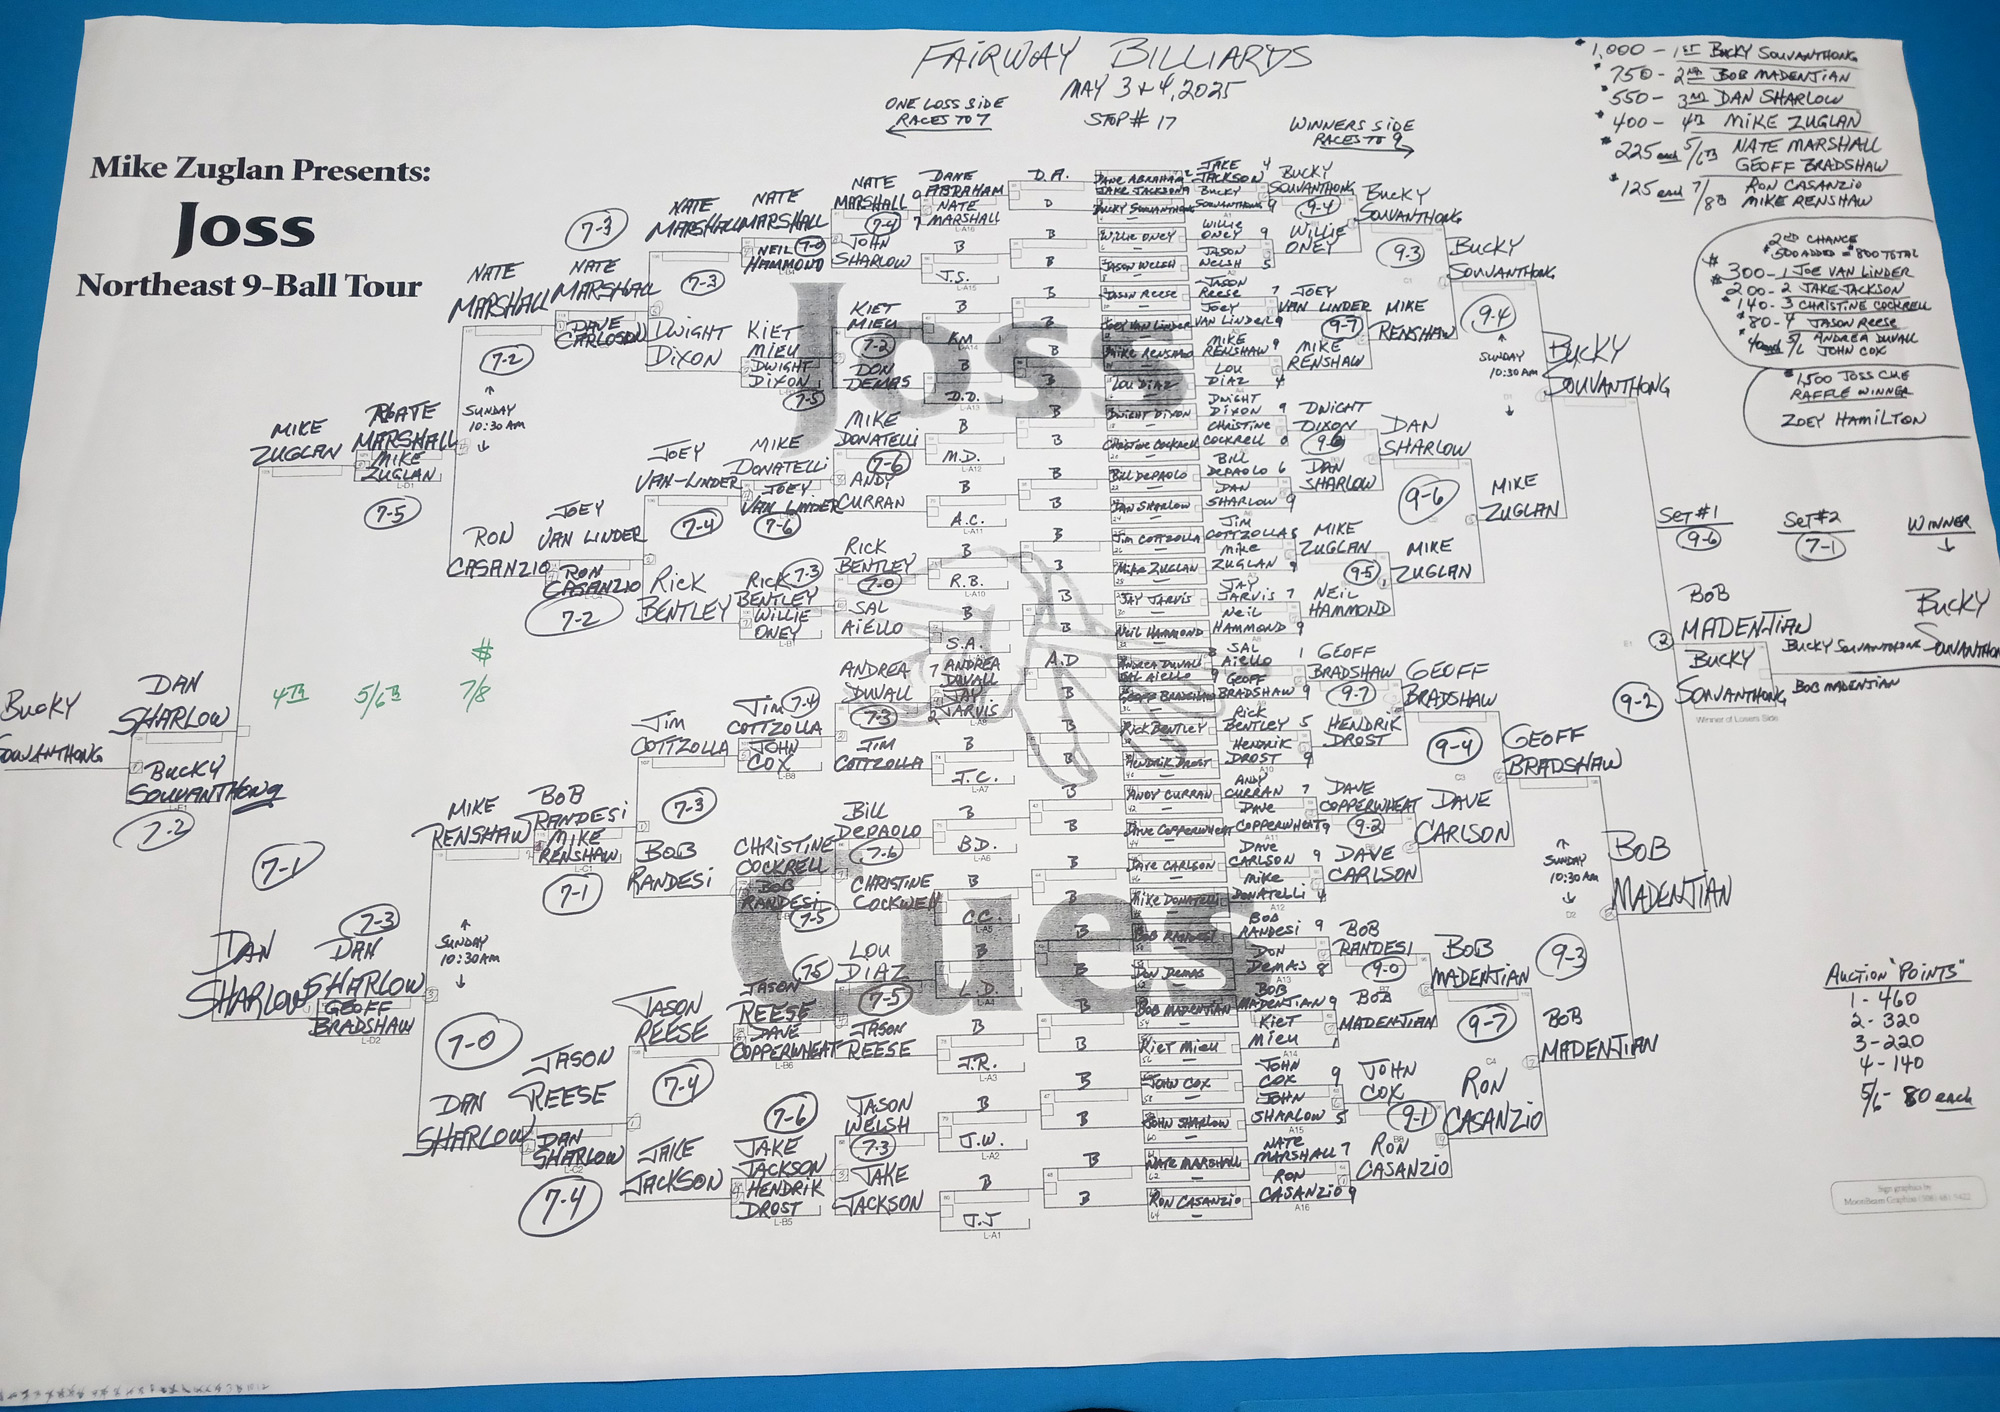 FAIRWAY BILLIARDS
MAY 3 & 4, 2025
STOP # 17
ONE LOSS SIDE
RACES TO 7
WINNERS SIDE
RACES TO 9
Mike Zuglan Presents:
Joss
Northeast 9-Ball Tour
Joss
Cues
1,000 - 1ST BUCKY SOUVANTHONG
750 - 2ND BOB MADENJIAN
550 - 3RD DAN SHARLOW
400 - 4TH MIKE ZUGLAN
225 each 5/6TH NATE MARSHALL
GEOFF BRADSHAW
125 each 7/8TH RON CASANZIO
MIKE RENSHAW
2ND CHANCE
$500 ADDED = $800 TOTAL
$300 - 1 JOE VAN LINDER
$200 - 2 JAKE JACKSON
$140 - 3 CHRISTINE COCKRELL
$80 - 4 JASON REESE
40 each 5/6 ANDREA DUVALL
JOHN COX
$1,500 JOSS CUE
RAFFLE WINNER
ZOEY HAMILTON
BUCKY
SOUVANTHONG
DAN
SHARLOW
BUCKY
SOUVANTHONG
7-2
MIKE
ZUGLAN
7-1
DAN
SHARLOW
4TH
5/6TH
$
7/8
NATE
MARSHALL
MIKE
ZUGLAN
L-D1
7-5
7-3
DAN
SHARLOW
GEOFF
BRADSHAW
L-D2
NATE
MARSHALL
7-2
SUNDAY
10:30 AM
RON
CASANZIO
MIKE
RENSHAW
SUNDAY
10:30 AM
7-0
DAN
SHARLOW
7-3
NATE
MARSHALL
DAVE
CARLSON
JOEY
VAN LINDER
RON
CASANZIO
7-2
BOB
RANDESI
MIKE
RENSHAW
L-C1
7-1
JASON
REESE
DAN
SHARLOW
L-C2
7-4
NATE
MARSHALL
7-3
DWIGHT
DIXON
JOEY
VAN-LINDER
7-4
RICK
BENTLEY
JIM
COTTZOLLA
7-3
BOB
RANDESI
JASON
REESE
7-4
JAKE
JACKSON
NATE
MARSHALL
NEIL 7-0
HAMMOND
KIET
MIEU
DWIGHT
DIXON
7-5
MIKE
DONATELLI
JOEY
VAN LINDER
7-6
RICK 7-3
BENTLEY
WILLIE
ONEY
JIM 7-4
COTTZOLLA
JOHN
COX
L-B8
CHRISTINE
COCKRELL
BOB
RANDESI
7-5
JASON
REESE
DAVE
COPPERWHEAT
L-B6
7-6
JAKE
JACKSON
HENDRIK
DROST
L-B5
NATE
MARSHALL
7-4
JOHN
SHARLOW
KIET
MIEU
7-2
DON
DEMAS
MIKE
DONATELLI
7-6
ANDY
CURRAN
RICK
BENTLEY
7-0
SAL
AIELLO
ANDREA
DUVALL
7-3
JIM
COTTZOLLA
BILL
DEPAOLO
7-6
CHRISTINE
COCKWELL
LOU
DIAZ
7-5
JASON
REESE
JASON
WELSH
7-3
JAKE
JACKSON
DANE
ABRAHAM 0
NATE
MARSHALL 7
L-A16
B
J.S.
L-A15
B
KM
L-A14
B
D.D.
L-A13
B
M.D.
L-A12
B
A.C.
L-A11
B
R.B.
L-A10
B
S.A.
7 ANDREA
DUVALL
2 JAY
JARVIS
B
J.C.
L-A7
B
B.D.
L-A6
B
C.C.
L-A5
B
L.D.
L-A4
B
J.R.
L-A3
B
J.W.
L-A2
B
J.J
L-A1
D.A.
A.D
DANE ABRAHAM
JAKE JACKSON
BUCKY SOUVANTHONG
WILLIE ONEY
JASON WELSH
JASON REESE
JOEY VAN LINDER
MIKE RENSHAW
LOU DIAZ
DWIGHT DIXON
CHRISTINE COCKRELL
BILL DEPAOLO
DAN SHARLOW
JIM COTTZOLLA
MIKE ZUGLAN
JAY JARVIS
NEIL HAMMOND
ANDREA DUVALL
SAL AIELLO
GEOFF BRADSHAW
RICK BENTLEY
HENDRIK DROST
ANDY CURRAN
DAVE COPPERWHEAT
DAVE CARLSON
MIKE DONATELLI
BOB RANDESI
DON DEMAS
BOB MADENTIAN
KIET MIEU
JOHN COX
JOHN SHARLOW
NATE MARSHALL
RON CASANZIO
JAKE 4
JACKSON
BUCKY
SOUVANTHONG 9
WILLIE
ONEY 9
JASON
WELSH 5
JASON
REESE 7
JOEY
VAN LINDER 9
MIKE
RENSHAW 9
LOU
DIAZ 4
DWIGHT
DIXON 9
CHRISTINE
COCKRELL 0
BILL
DEPAOLO 6
DAN
SHARLOW 9
JIM
COTTZOLLA 5
MIKE
ZUGLAN 9
JAY
JARVIS 7
NEIL
HAMMOND 9
SAL
AIELLO 1
GEOFF
BRADSHAW 9
RICK
BENTLEY 5
HENDRIK
DROST 9
ANDY
CURRAN 7
DAVE
COPPERWHEAT 9
DAVE
CARLSON 9
MIKE
DONATELLI 4
BOB
RANDESI 9
DON
DEMAS 8
BOB
MADENTIAN 9
KIET
MIEU 1
JOHN
COX 9
JOHN
SHARLOW 5
NATE
MARSHALL 7
RON
CASANZIO 9
BUCKY
SOUVANTHONG
9-4
WILLIE
ONEY
JOEY
VAN LINDER
9-7
MIKE
RENSHAW
DWIGHT
DIXON
9-6
DAN
SHARLOW
MIKE
ZUGLAN
9-5
NEIL
HAMMOND
GEOFF
BRADSHAW
9-7
HENDRIK
DROST
DAVE
COPPERWHEAT
9-2
DAVE
CARLSON
BOB
RANDESI
9-0
BOB
MADENTIAN
JOHN
COX
9-1
RON
CASANZIO
BUCKY
SOUVANTHONG
9-3
MIKE
RENSHAW
DAN
SHARLOW
9-6
MIKE
ZUGLAN
GEOFF
BRADSHAW
9-4
DAVE
CARLSON
BOB
MADENTIAN
9-7
RON
CASANZIO
BUCKY
SOUVANTHONG
9-4
SUNDAY
10:30 AM
MIKE
ZUGLAN
GEOFF
BRADSHAW
SUNDAY
10:30 AM
9-3
BOB
MADENTIAN
BUCKY
SOUVANTHONG
9-2
BOB
MADENTIAN
SET #1
9-6
SET #2
7-1
WINNER
BOB
MADENTIAN
BUCKY
SOUVANTHONG
Winner of Losers Side
BUCKY SOUVANTHONG
BOB MADENTIAN
BUCKY
SOUVANTHON
AUCTION "POINTS"
1 - 460
2 - 320
3 - 220
4 - 140
5/6 - 80 each
Sign graphics by
MoonBeam Graphics